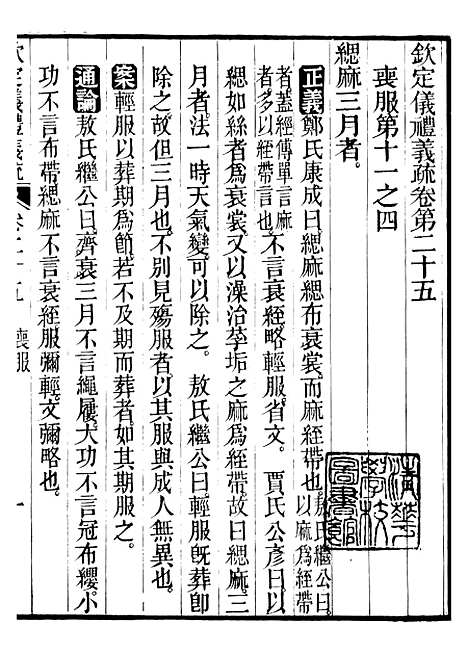 欽定儀禮義疏卷第二十五
喪服第十一之四
緦麻三月者
正義鄭氏康成曰緦麻緦布衰裳而麻絰帶也敖氏繼公曰以麻為絰
者蓋經傳單言麻者多以絰帶言也不言衰絰略輕服省文賈氏公彥曰以
緦如絲者為衰裳又以澡治莩垢之麻為絰帶故曰緦麻三
月者法一時天氣變可以除之敖氏繼公曰輕服旣葬卽
除之故但三月也不別見殤服者以其服與成人無異也
案輕服以葬期為節若不及期而葬者如其期服之
通論敖氏繼公曰齊衰三月不言繩屨大功不言冠布纓小
功不言布帶緦麻不言衰絰服彌輕文彌略也
欽定儀禮義疏 卷二十五 喪服 一
清華學校圖書館